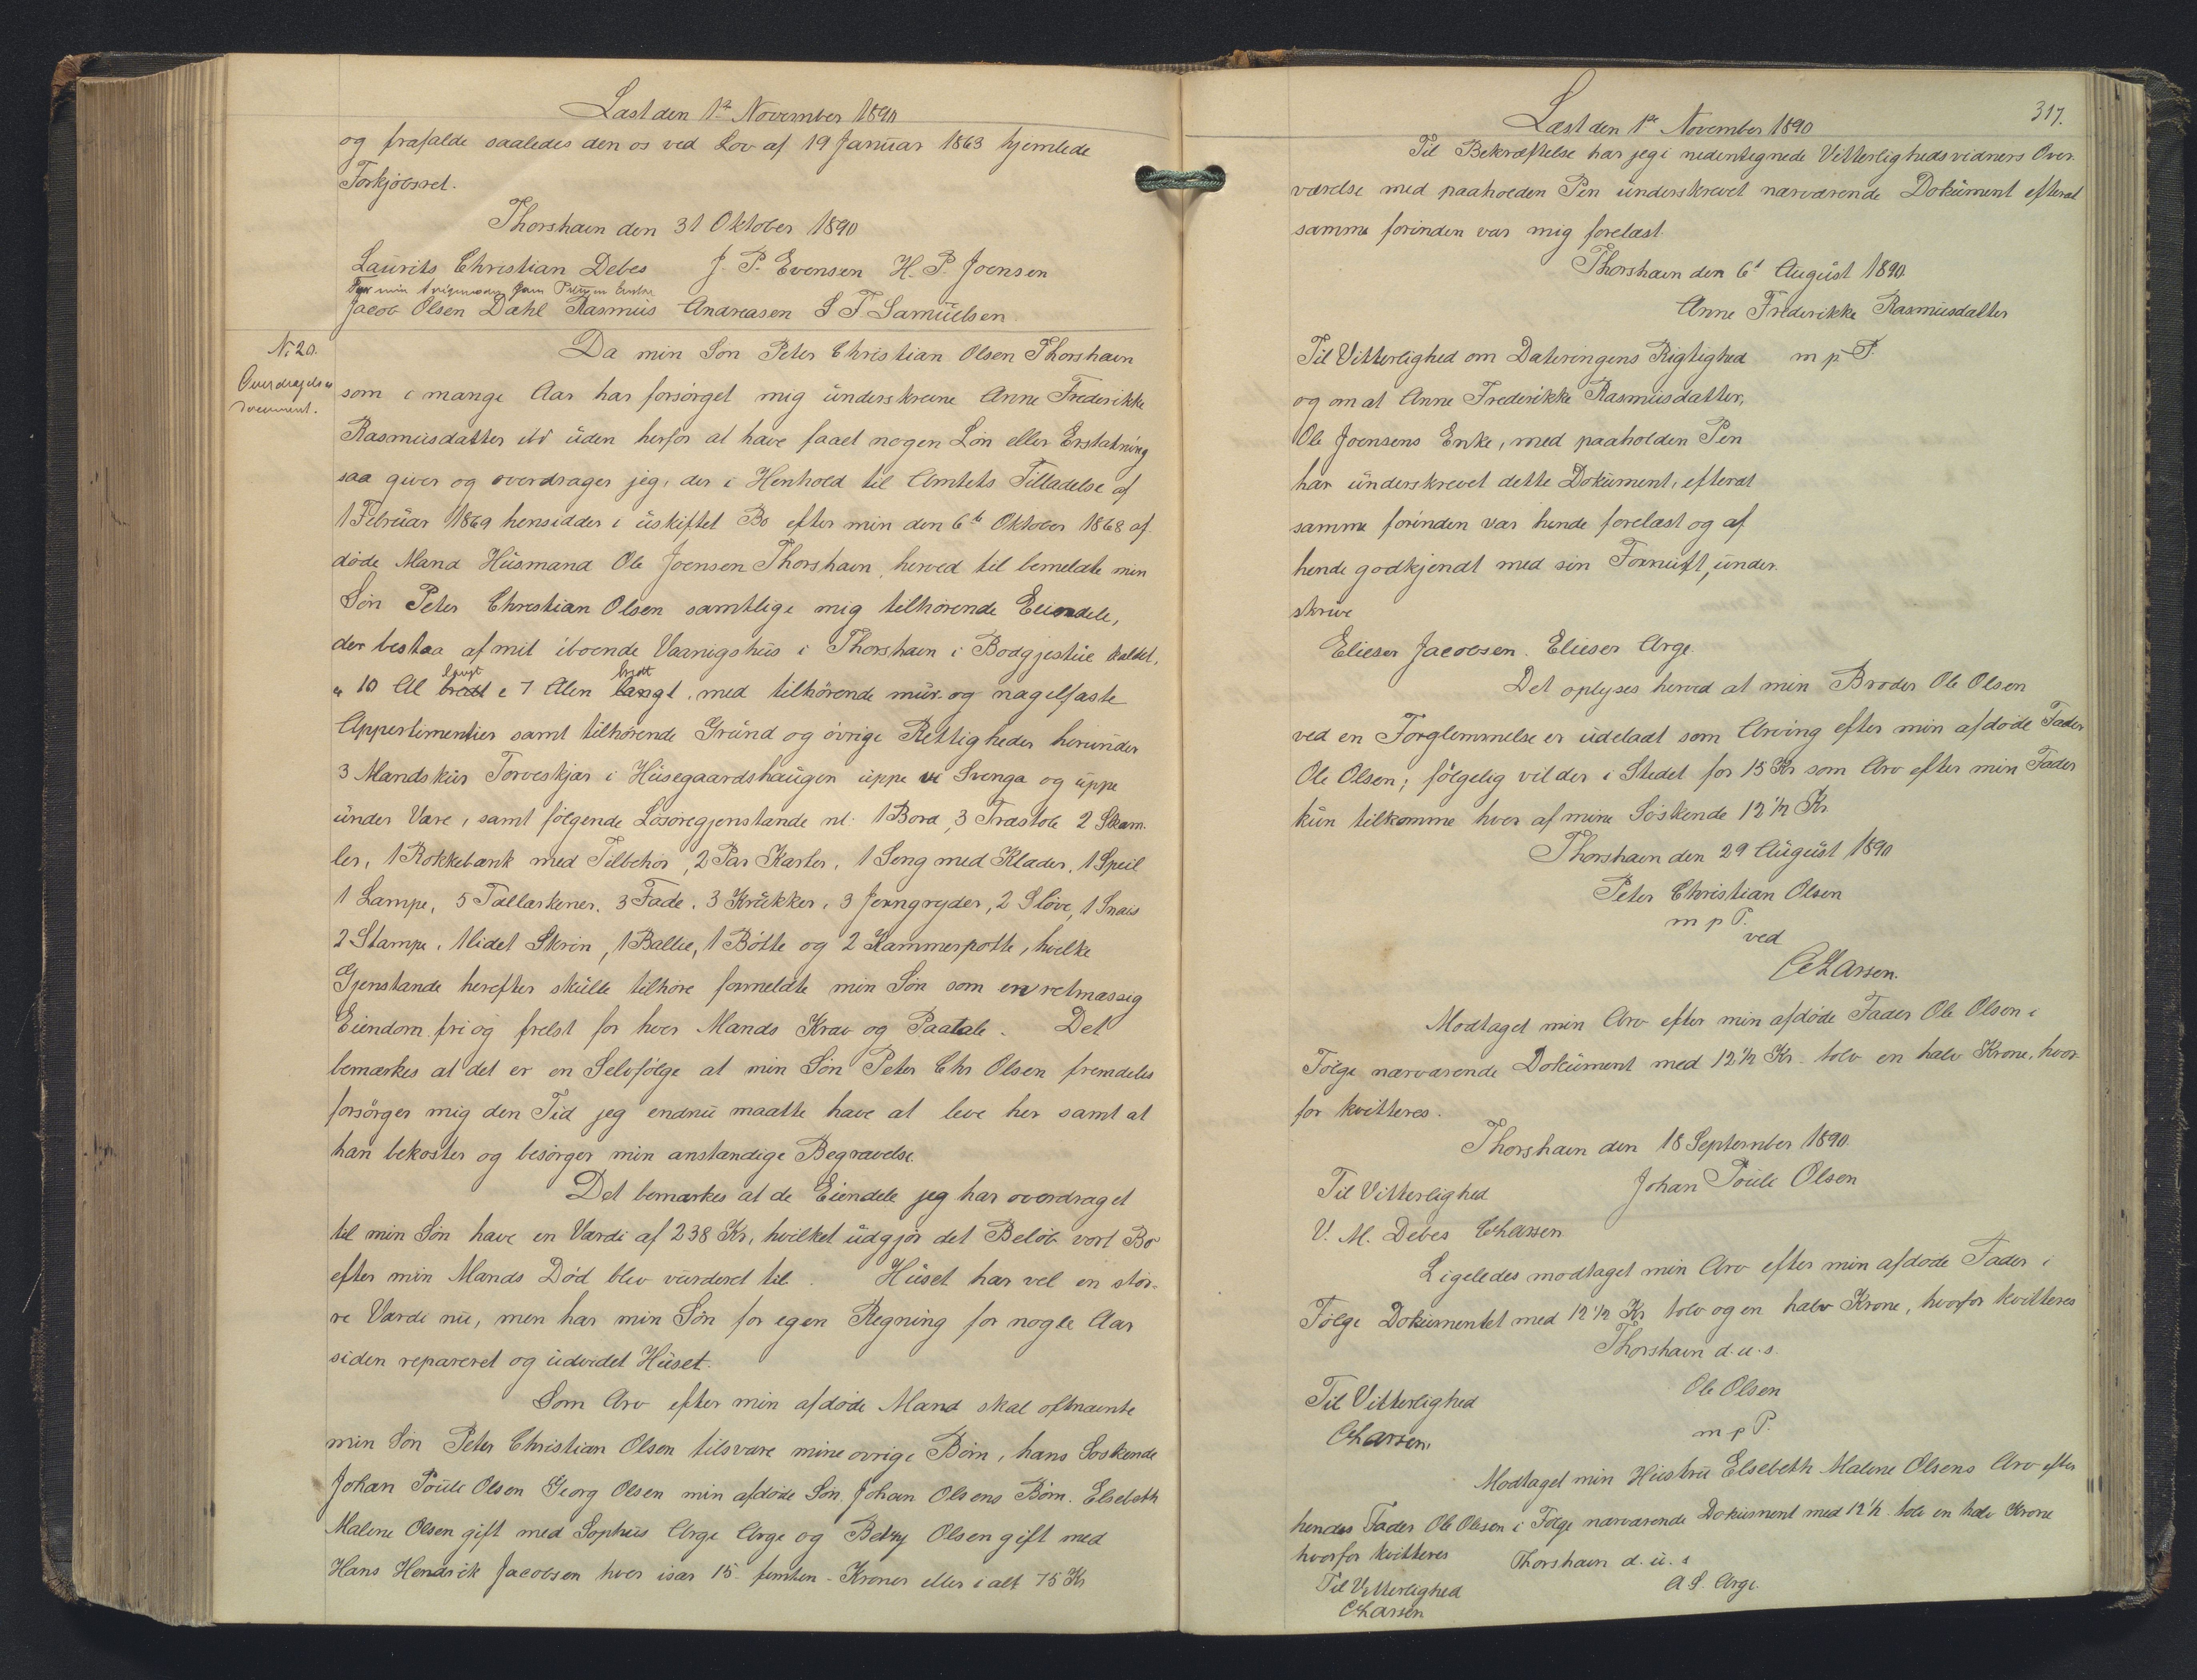 Læst den 1ste November 1890
og frafalde saaledes den os ved Lov af 19 Januar 1863 hjemlede
Forkjøbsret.
Thorshavn den 31 Oktober 1890
Laurits Christian Debes J. P. Evensen H. P. Joensen
For min
Jacob Olsen Dahl Rasmus Andreasen S T Samuelsen.
No 20.
Overdragelses
document.
Da min Søn Peter Christian Olsen Thorshavn
som i mange Aar har forsørget mig underskrevne Anne Frederikke
Rasmusdatter ibd uden herfor at have faaet nogen Løn eller Erstatning
saa giver og overdrager jeg, der i Henhold til Amtets Tilladelse af
1 Februar 1869 hensidder i uskiftet Bo efter min den 6te Oktober 1868 af-
døde Mand Husmand Ole Joensen Thorshavn, herved til bemeldte min
Søn Peter Christian Olsen samtlige mig tilhørende Eiendele,
der bestaa af mit iboende Vaanigshus i Thorshavn i Bodgjestue kaldet,
langt bredt
a 10 Al bredt e 7 Alen langt, med tilhørende mur- og nagelfaste
Appertimentier samt tilhørende Grund og øvrige Rettigheder herunder
3 Mandskur Torveskjær i Husegaardshaugen uppe vi Svenga og uppe
under Vare, samt følgende Løsøregjenstande nl. 1 Bord, 3 Træstole 2 Skam-
ler, 1 Rokkebænk med Tilbehør, 2 Par Karter, 1 Seng med Klæder, 1 Speil
1 Lampe, 5 Tallærkener, 3 Fade, 3 Krukker, 3 Jerngryder, 2 Sløve, 1 Snais
2 Stampe, 1 lidet Skrin, 1 Ballie, 1 Bøtte og 2 Kammerpotte, hvilke
Gjenstande herefter skulle tilhøre formeldte min Søn som en retmæssig
Eiendom fri og frelst for hver Mands Krav og Paatale. Det
bemærkes at det er en Selvfølge at min Søn Peter Chr Olsen fremdeles
forsørger mig den Tid jeg endnu maatte have at leve her samt at
han bekoster og besørger min anstændige Begravelse.
Det bemærkes at de Eiendele jeg har overdraget
til min Søn have en Værdi af 238 Kr, hvilket udgjør det Beløb vort Bo
efter min Mands Død blev vurderet til. Huset har vel en stør-
re Værdi nu, men har min Søn for egen Regning for nogle Aar
siden repareret og udvidet Huset.
Som Arv efter min afdøde Mand skal oftnævnte
min Søn Peter Christian Olsen tilsvare mine øvrige Børn, hans Søskende
Johan Poule Olsen Georg Olsen min afdøde Søn Johan Olsens Børn. Elsebeth
Malene Olsen gift med Sophus Arge Arge og Betzy Olsen gift med
Hans Hendrik Jacobsen hver især 15 - femten - Kroner eller i alt 75 Kr
317.
Læst den 1ste November 1890
Til Bekræftelse har jeg i nedentegnede Vitterlighedsvidners Over-
værelse med paaholden Pen underskrevet nærværende Dokument efterat
samme forinden var mig forelæst.
Thorshavn den 6te August 1890.
Anne Frederikke Rasmusdatter
Til Vitterlighed om Dateringens Rigtighed m p P.
og om at Anne Frederikke Rasmusdatter,
Ole Joensens Enke, med paaholden Pen
har underskrevet dette Dokument, efterat
samme forinden var hende forelæst og af
hende godkjendt med sin Fornuft, under-
skrive
Elieser Jacobsen. Elieser Arge.
Det oplyses herved at min Broder Ole Olsen
ved en Forglemmelse er udeladt som Arving efter min afdøde Fader
Ole Olsen; følgelig vil der i Stedet for 15 Kr som Arv efter min Fader
kun tilkomme hver af mine Søskende 12 1/2 Kr
Thorshavn den 29 August 1890
Peter Christian Olsen
m p P.
ved
CLarsen.
Modtaget min Arv efter min afdøde Fader Ole Olsen i
Følge nærværende Dokument med 12 1/2 Kr - tolv en halv Krone, hvor-
for kvitteres.
Thorshavn den 18 September 1890.
Til Vitterlighed Johan Poule Olsen
V. M. Debes CLarsen
Ligeledes modtaget min Arv efter min afdøde Fader i
Følge Dokumentet med 12 1/2 Kr tolv og en halv Krone, hvorfor kvitteres
Thorshavn d. u. s.
Til Vitterlighed Ole Olsen
CLarsen. m p P.
Modtaget min Hustru Elsebeth Malene Olsens Arv efter
hendes Fader Ole Olesen i Følge nærværende Dokument med 12 1/2 tolv en halv Krone
hvorfor kvitteres Thorshavn d. u. s
Til Vitterlighed A S. Arge.
CLarsen